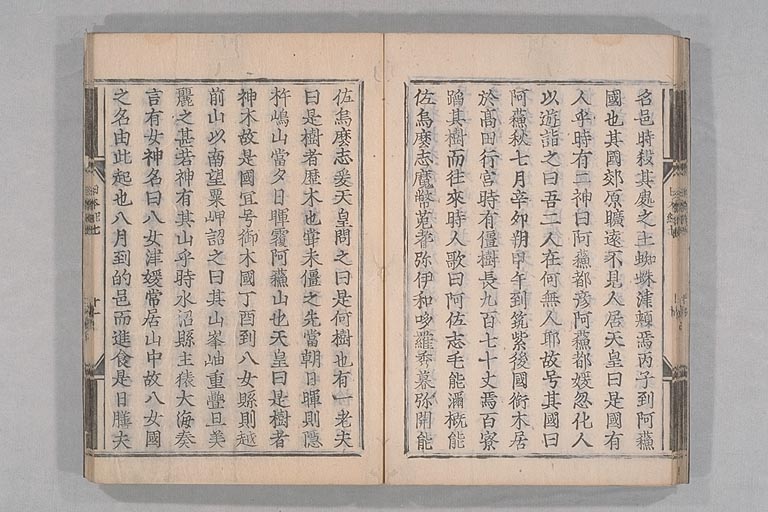 名邑時殺其處之主蜘蛛津頰焉丙子到阿蘇
國也其國郊原曠遠不見人居天皇曰是國有
人乎時有二神曰阿蘇都彥阿蘇都媛忽化人
以遊詣之曰吾二人在何無人耶故号其國曰
阿蘇秋七月辛卯朔甲午到筑紫後國御木居
於高田行宮時有僵樹長九百七十丈焉百寮
蹈其樹而往來時人歌曰阿佐志毛能瀰概能
佐烏麼志魔幣菟耆弥伊和哆羅秀暮弥開能
佐烏麼志爰天皇問之曰是何樹也有一老夫
曰是樹者歷木也甞未僵之先當朝日暉則隱
杵嶋山當夕日暉覆阿蘇山也天皇曰是樹者
神木故是國宜号御木國丁酉到八女縣則越
前山以南望粟岬詔之曰其山峯岫重疊且美
麗之甚若神有其山乎時水沼縣主猿大海奏
言有女神名曰八女津媛常居山中故八女國
之名由此起也八月到的邑而進食是日膳夫